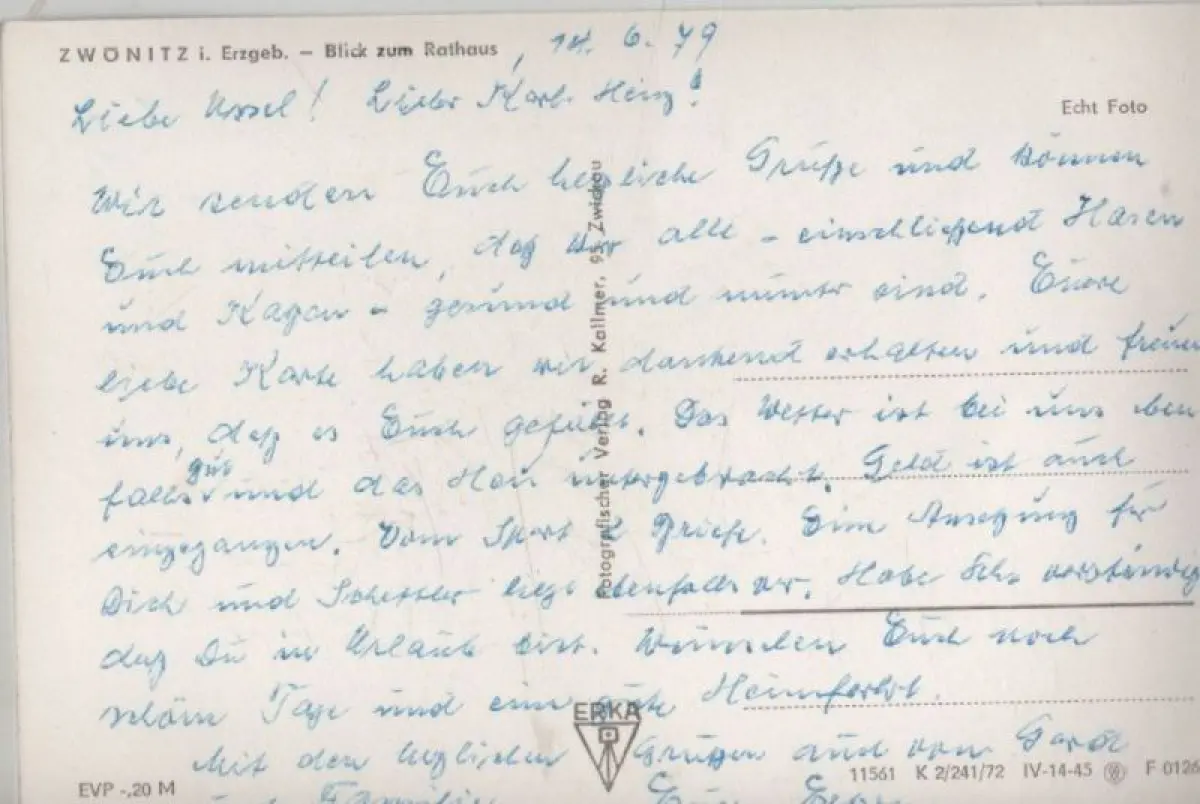 ZWÖNITZ i. Erzgeb. – Blick zum Rathaus
14. 6. 79
Echt Foto
Liebe Ursel! Lieber Karl-Heinz!
Wir senden Euch herzliche Grüße und können
Euch mitteilen, daß wir alle – einschließend Hasen
und Katzen – gesund und munter sind. Eure
liebe Karte haben wir dankend erhalten und freuen
uns, daß es Euch gefällt. Das Wetter ist bei uns eben
falls gut und das Heu untergebracht. Geld ist auch
eingegangen. Vom Sport 2 Briefe. Eine für
Dich und liegt ebenfalls vor. Habe verständigt
daß Du in Urlaub bist. Wünschen Euch noch
schöne Tage und eine gute Heimfahrt.
Mit den herzlichen Grüßen auch von Gerda
Familie Eure
Fotografischer Verlag R. Kallmer, 95 Zwickau
ERKA
EVP -,20 M
11561 K 2/241/72 IV-14-45 F 0126